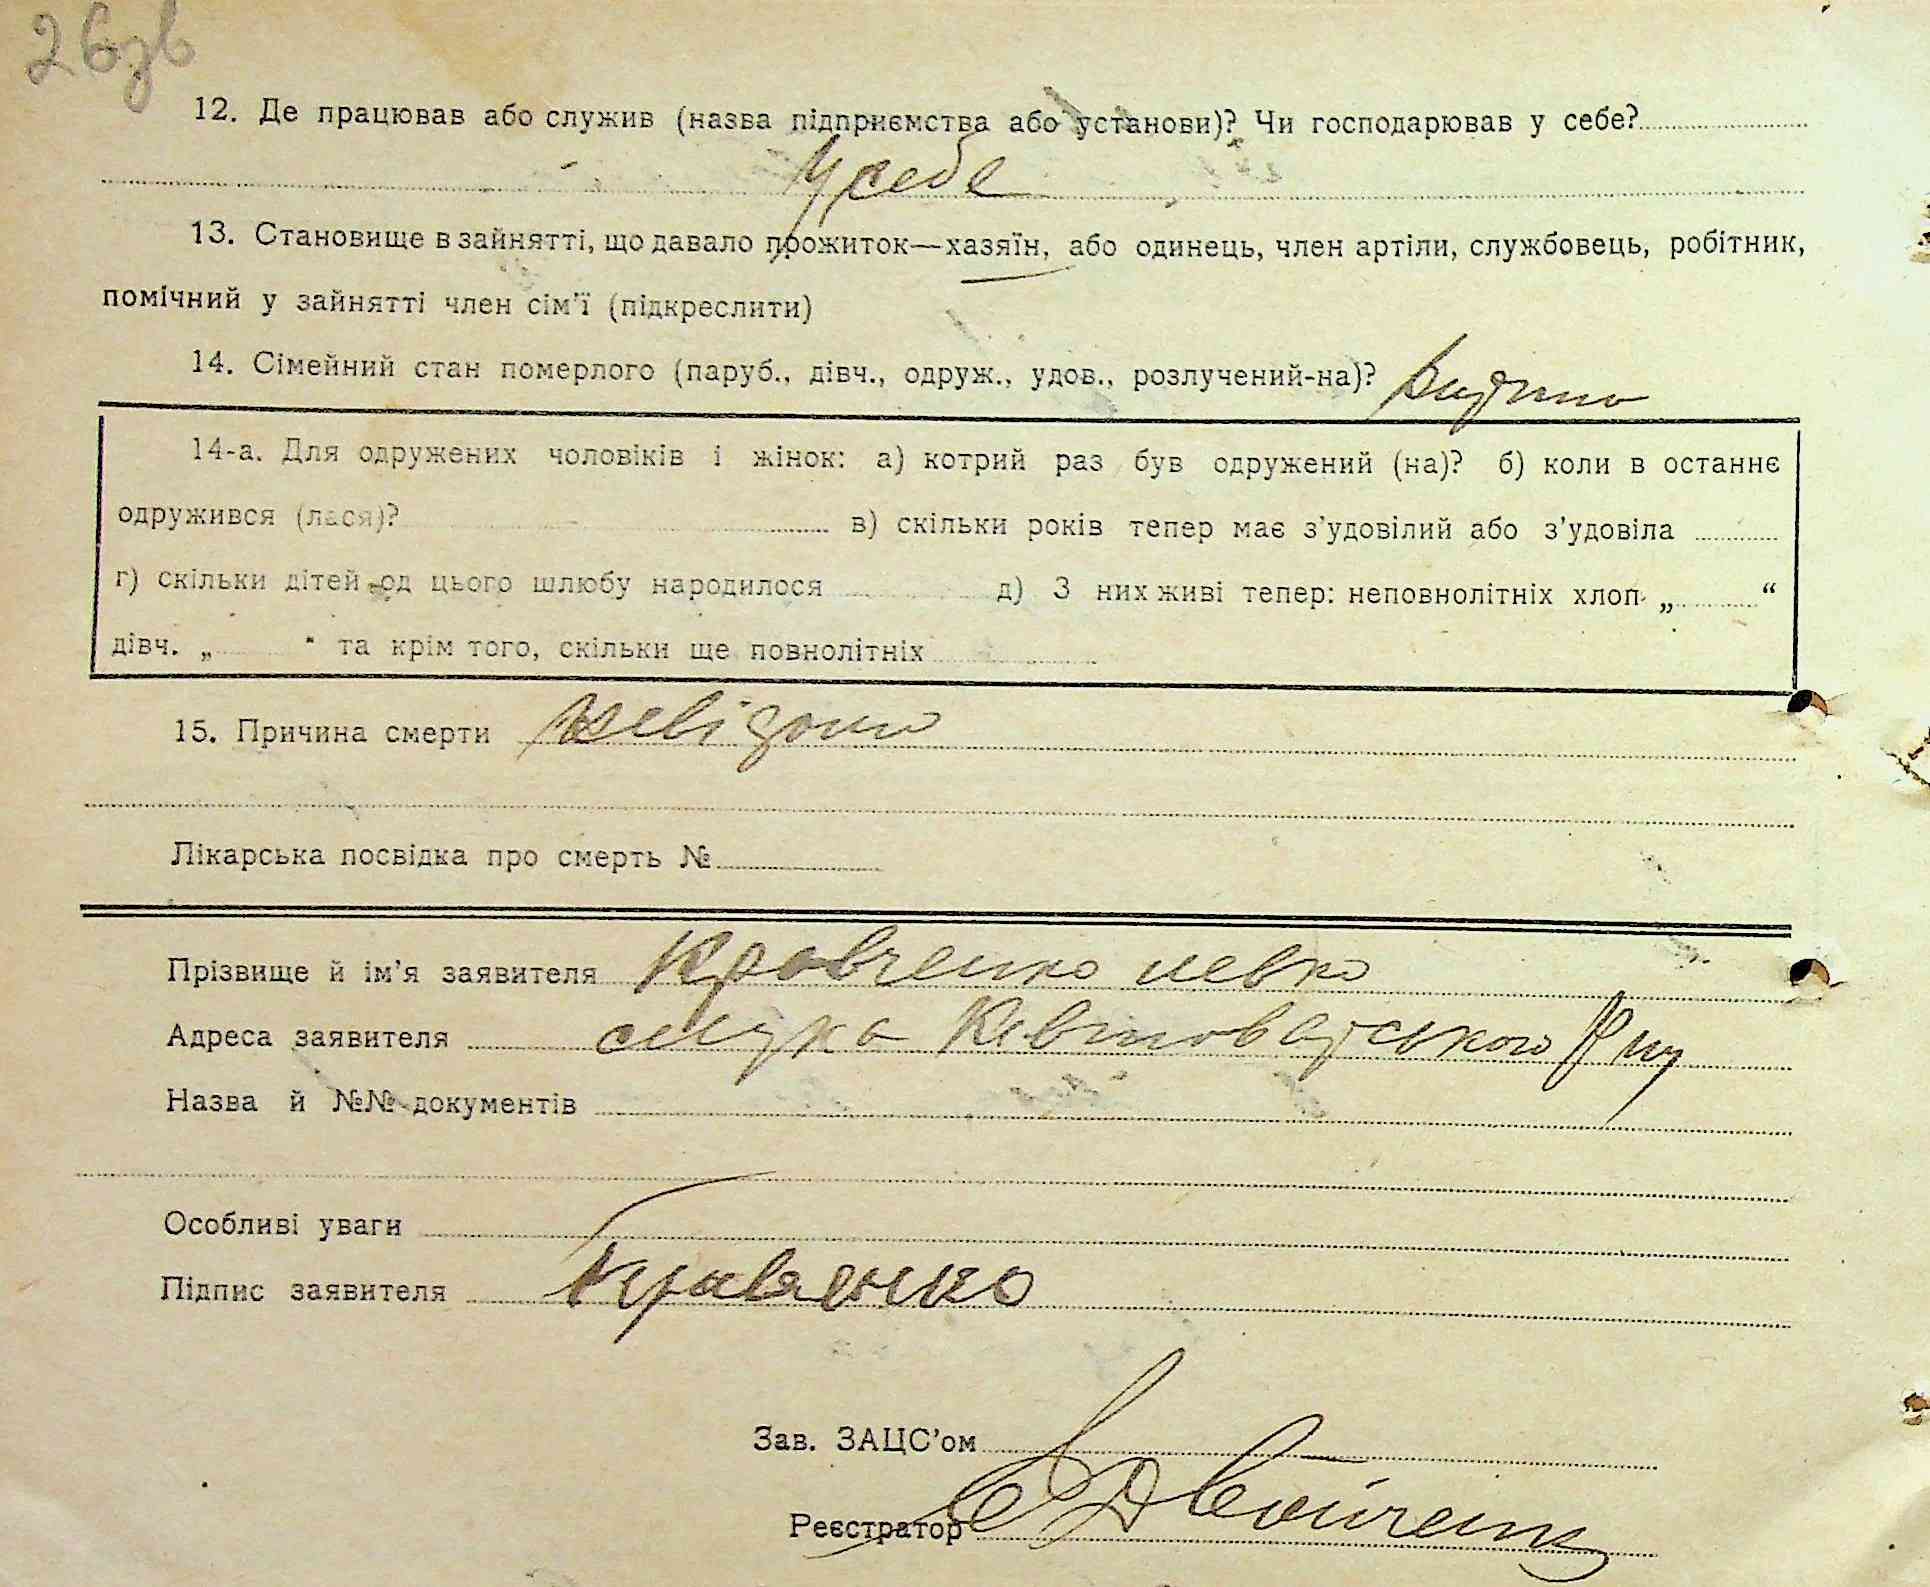 26зв
12. Де працював або служив (назва підприємства або установи)? Чи господарював у себе?
У себе
13. Становище в зайнятті, що давало прожиток—хазяїн, або одинець, член артіли, службовець, робітник,
помічний у зайнятті член сім'ї (підкреслити)
14. Сімейний стан померлого (паруб., дівч., одруж., удов., розлучений-на)?
14-а. Для одружених чоловіків і жінок: а) котрий раз був одружений (на)? б) коли в останнє
одружився (лася)? в) скільки років тепер має з'удовілий або з'удовіла
г) скільки дітей од цього шлюбу народилося д) З них живі тепер: неповнолітніх хлоп. „ “
дівч. „ “ та крім того, скільки ще повнолітніх
15. Причина смерти невідома
Лікарська посвідка про смерть №
Прізвище й ім'я заявителя Кравченко
Адреса заявителя
Назва й №№ документів
Особливі уваги
Підпис заявителя Кравченко
Зав. ЗАЦС'ом
Реєстратор